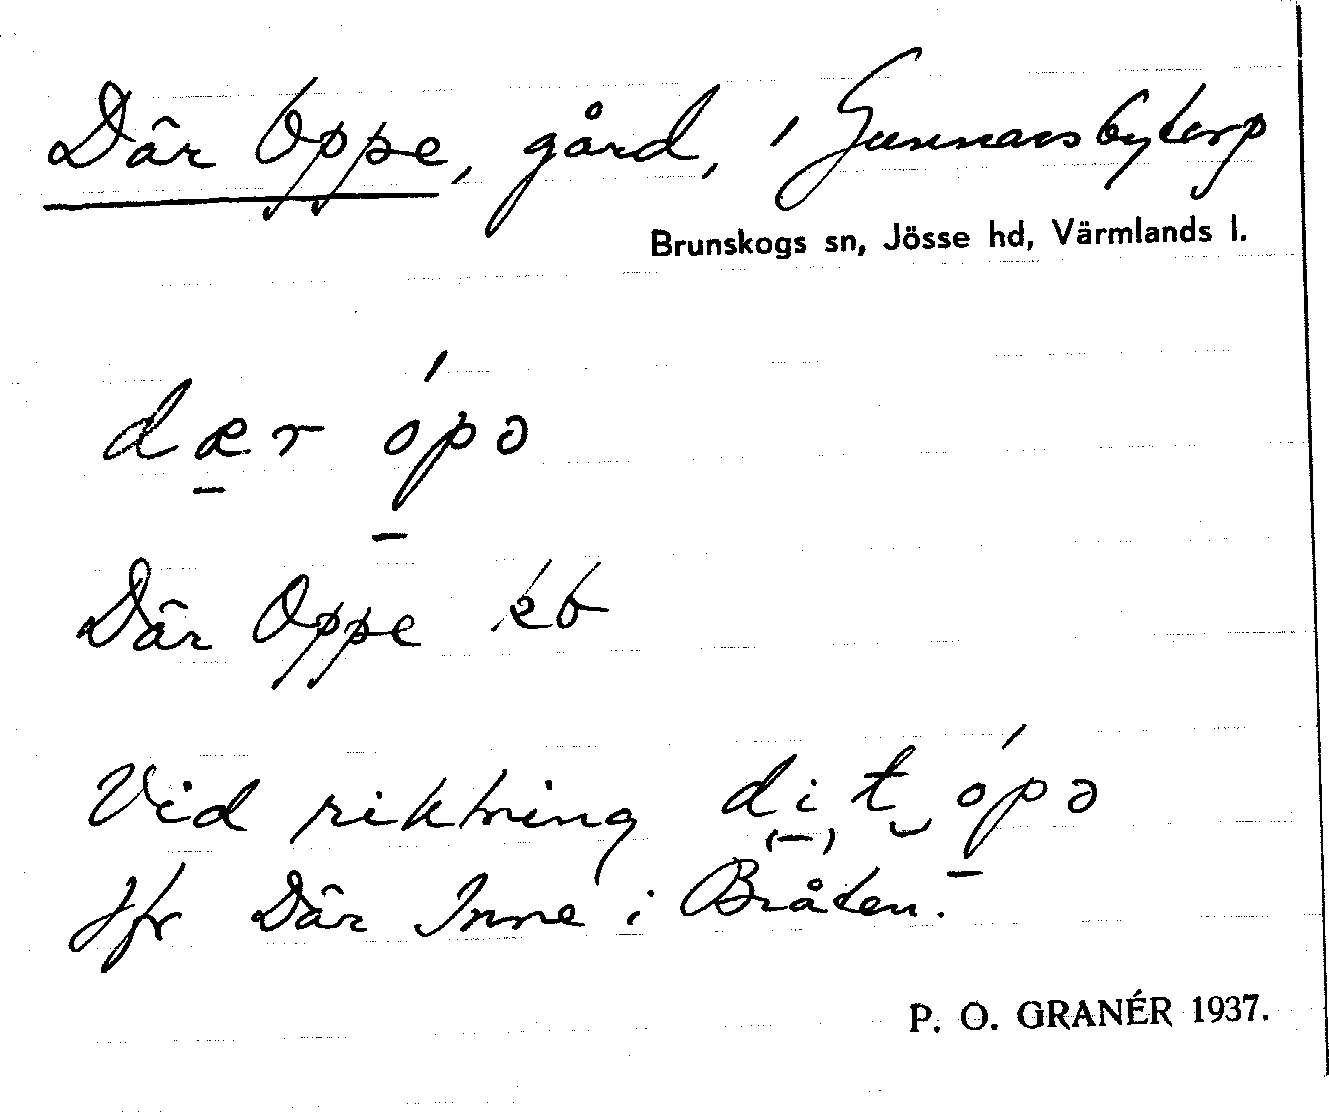 Där Oppe, gård, i Gunnarsbytorp
Brunskogs sn, Jösse hd, Värmlands l.
dær ópə
Där Oppe kb
Vid riktning di t ópə
Jfr Där Inne i Bråten.
P. O. GRANÉR 1937.